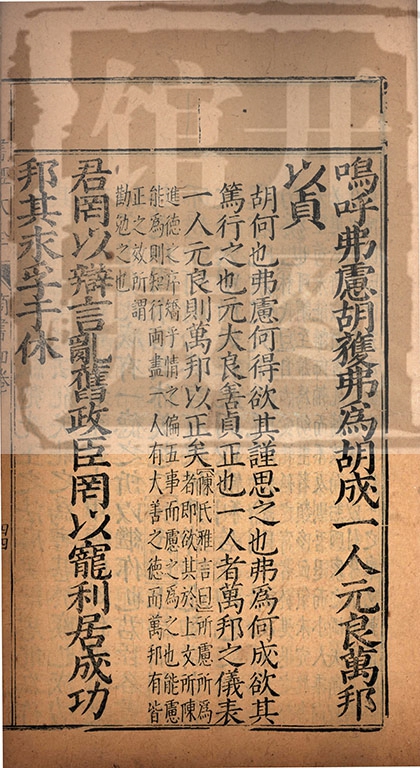 嗚呼弗慮胡獲弗為胡成一人元良萬邦
以貞
胡何也弗慮何得欲其謹思之也弗為何成欲其
篤行之也元大良善貞正也一人者萬邦之儀表
一人元良則萬邦以正矣
陳氏雅言曰所慮所為
者即欲其於上文所陳
進德之序矯乎情之偏五事而慮之為之也能慮
能為則知行兩盡一人有大善之德而萬邦有皆
正之效所謂
勸勉之也
君罔以辯言亂舊政臣罔以寵利居成功
邦其永孚于休